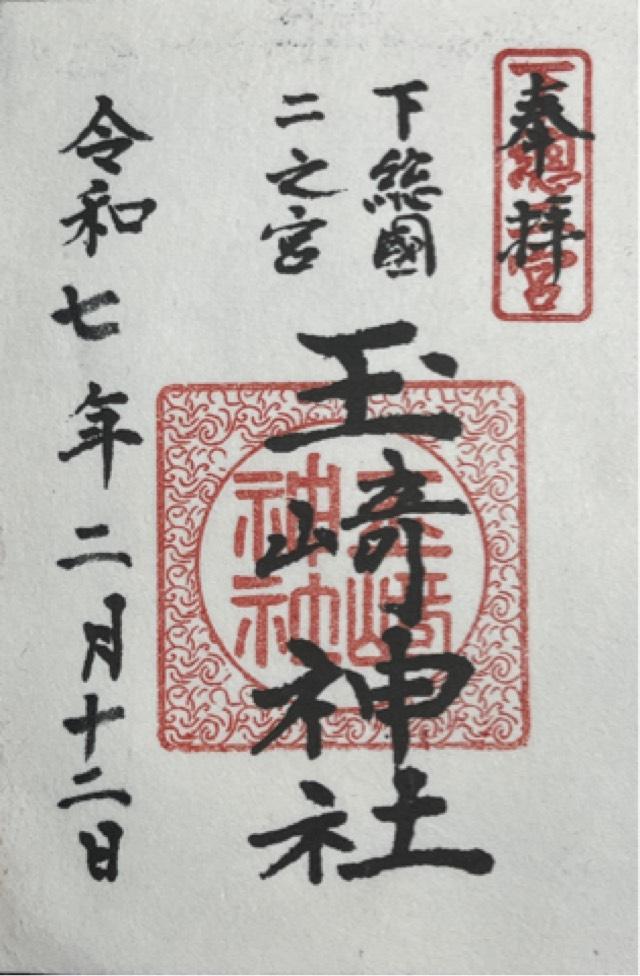 奉拝
下総二宮
下総國
二之宮
玉﨑神社
玉﨑神社
令和七年二月十二日